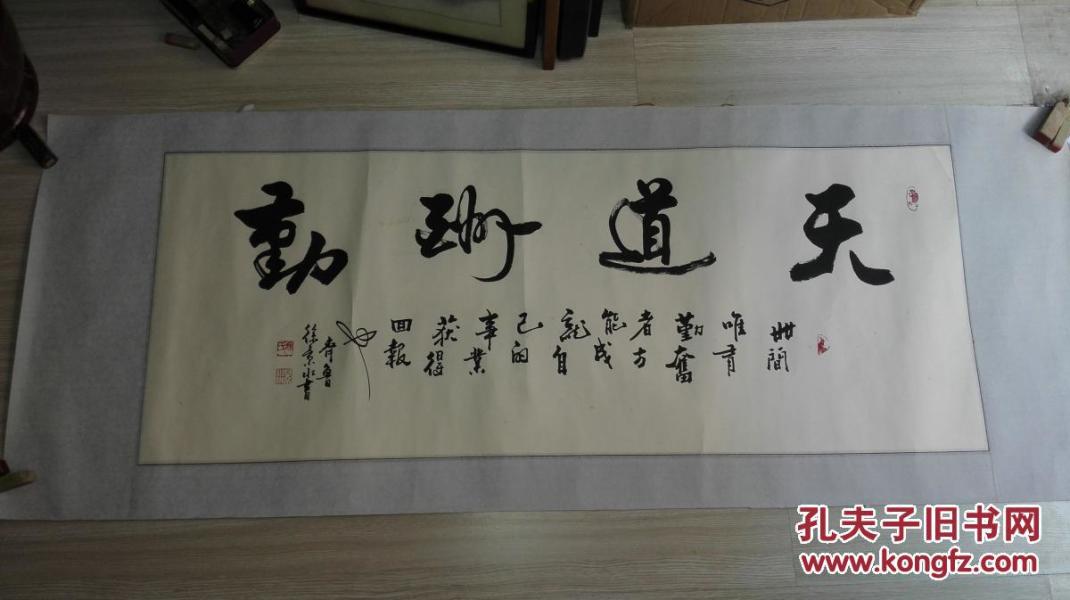 天道酬勤
世間
唯有
勤奮
者方
能成
就自
己的
事業
获得
回報
也
齊魯
徐景水書
孔夫子旧书网
www.kongfz.com